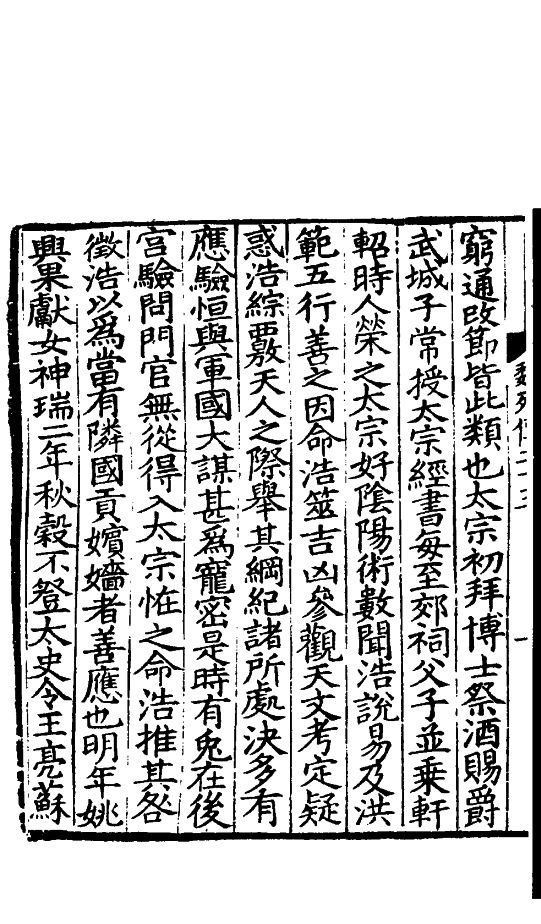 魏列傳二十三
一
窮通改節皆此類也太宗初拜博士祭酒賜爵
武城子常授太宗經書每至郊祠父子並乗軒
軺時人榮之太宗好陰陽術數聞浩說易及洪
範五行善之因命浩筮吉凶參觀天文考定疑
惑浩綜覈天人之際舉其綱紀諸所處決多有
應驗恒與軍國大謀甚爲寵密是時有兔在後
宫驗問門官無從得入太宗恠之命浩推其咎
徵浩以爲當有隣國貢嬪嬙者善應也明年姚
興果獻女神瑞二年秋穀不登太史令王亮蘇